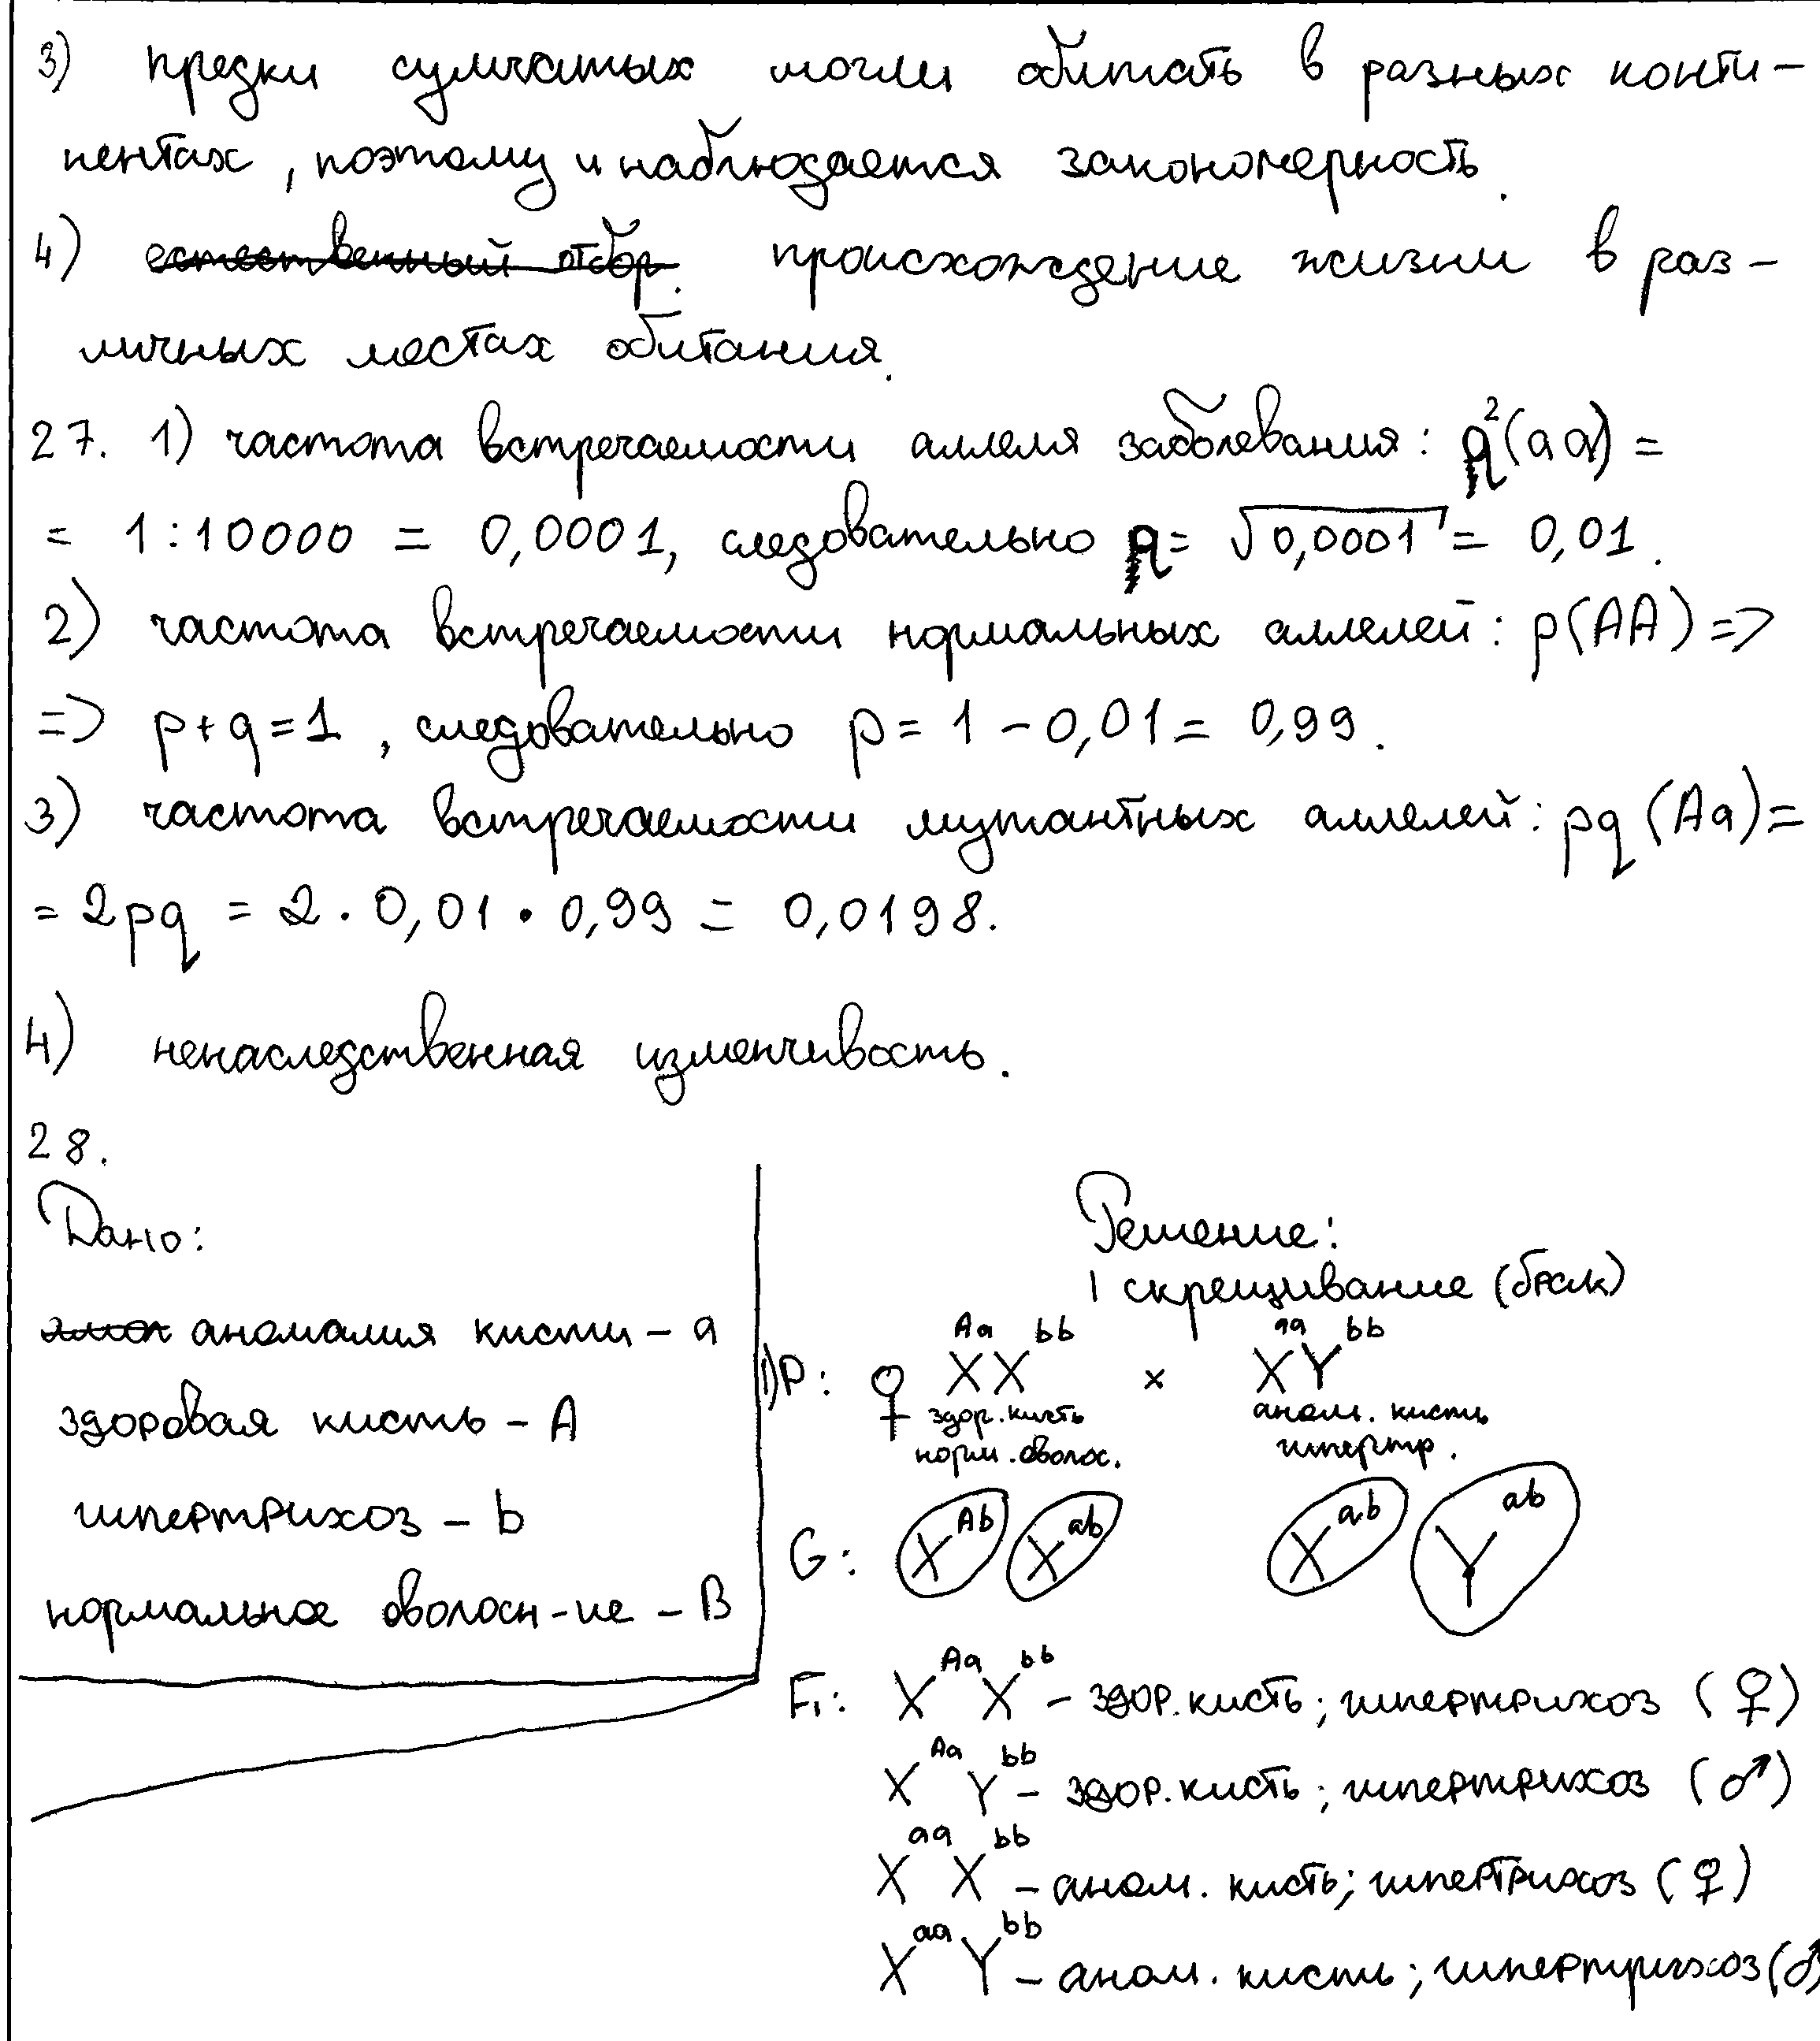 3) предки сумчатых могли обитать в разных конти-
нентах, поэтому и наблюдается закономерность.
4) естественный отбор. происхождение жизни в раз-
личных местах обитания.
27. 1) частота встречаемости аллеля заболевания: q²(aa) =
= 1:10000 = 0,0001, следовательно q = √0,0001 = 0,01.
2) частота встречаемости нормальных аллелей: p(AA) =>
=> p+q=1, следовательно p = 1 - 0,01 = 0,99.
3) частота встречаемости мутантных аллелей: pq (Aa) =
= 2pq = 2 · 0,01 · 0,99 = 0,0198.
4) ненаследственная изменчивость.
28.
Дано:
аномалия кисти - a
здоровая кисть - A
гипертрихоз - b
нормальное оволосн-ие - B
Решение:
1 скрещивание (брак)
1) P: ♀ X^Aa X^bb × X^aa Y^bb
здор. кисть аном. кисть
норм. оволос. гипертр.
G: X^Ab X^ab X^ab Y^ab
F₁: X^Aa X^bb - здор. кисть; гипертрихоз (♀)
X^Aa Y^bb - здор. кисть; гипертрихоз (♂)
X^aa X^bb - аном. кисть; гипертрихоз (♀)
X^aa Y^bb - аном. кисть; гипертрихоз (♂)